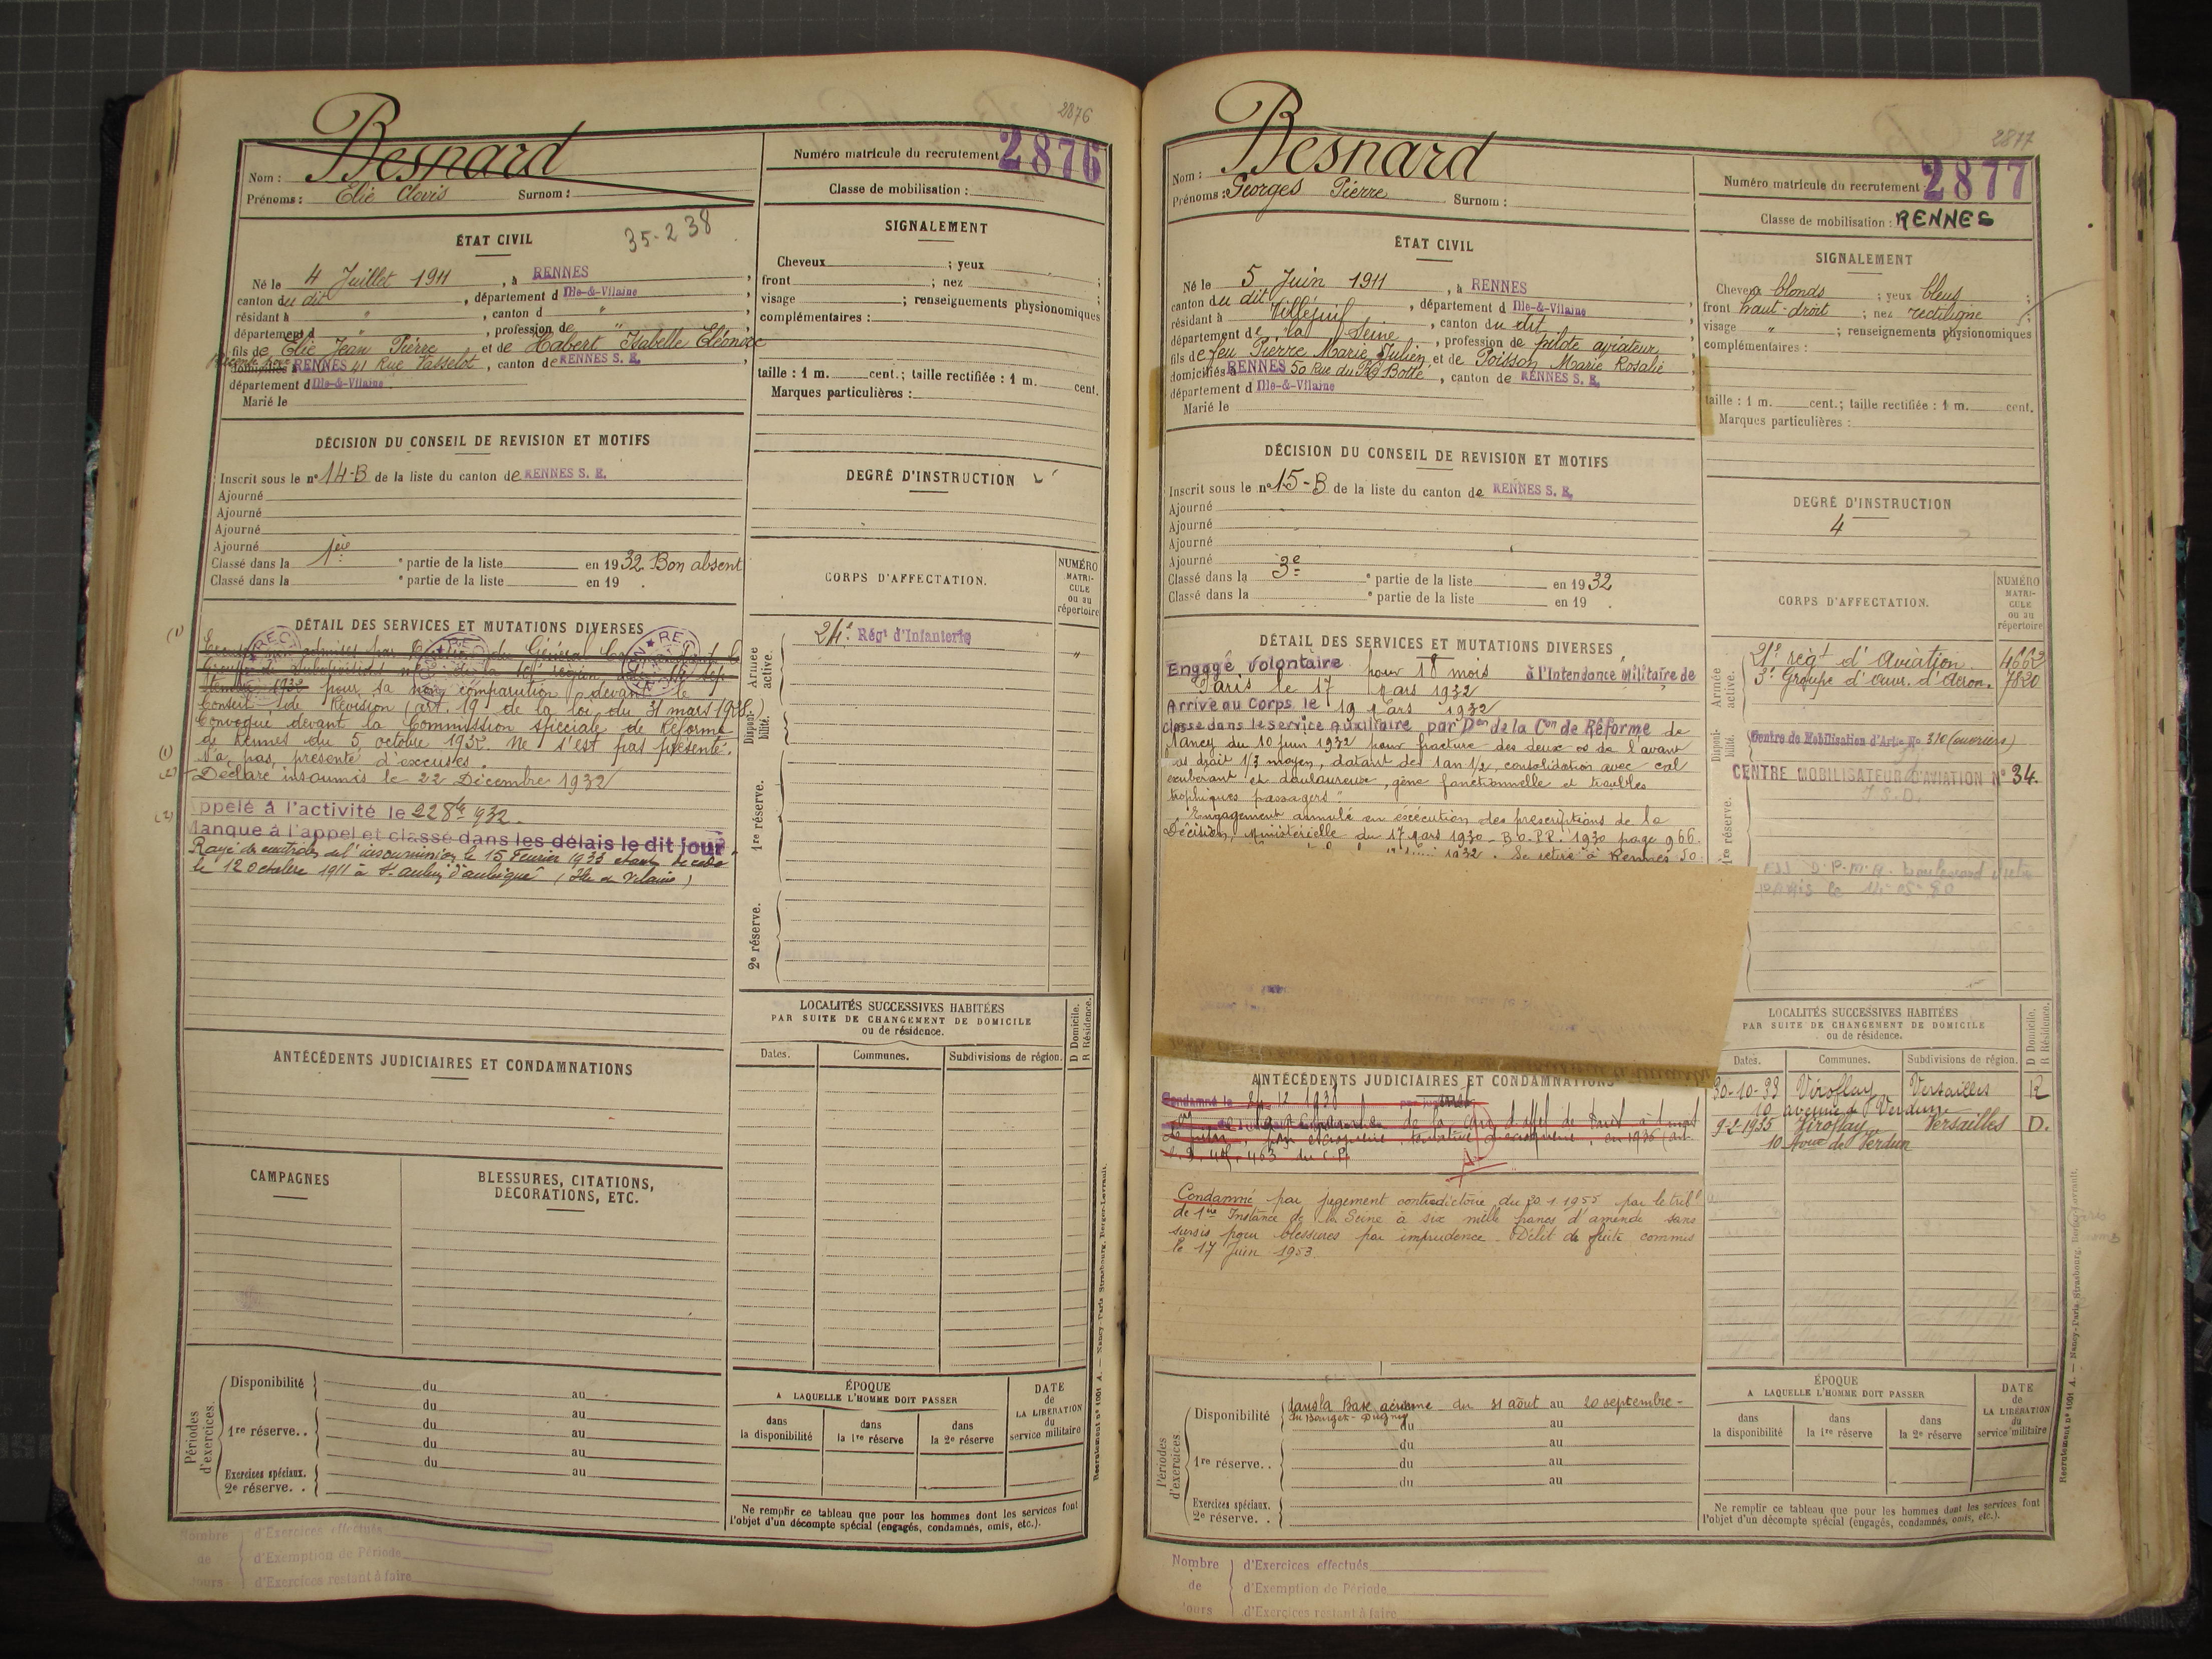 2876
Nom : Besnard
Prénoms : Elie Clovis Surnom :
Numéro matricule du recrutement 2876
Classe de mobilisation :
ÉTAT CIVIL
35-2 38
Né le 4 Juillet 1911, à RENNES
canton du dit, département d Ille-&-Vilaine
résidant à " , canton d "
département d " , profession de "
fils de Elie Jean Pierre et de Habert Isabelle Eléonore
domicilié à RENNES 41 Rue Vasselot, canton de RENNES S. E.
département d Ille-&-Vilaine
Marié le
SIGNALEMENT
Cheveux ; yeux ;
front ; nez ;
visage ; renseignements physionomiques
complémentaires :
taille : 1 m. cent. ; taille rectifiée : 1 m. cent.
Marques particulières :
DÉCISION DU CONSEIL DE REVISION ET MOTIFS
Inscrit sous le nº 14-B de la liste du canton de RENNES S. E.
Ajourné
Ajourné
Ajourné
Ajourné
Classé dans la 1ère partie de la liste en 1932 Bon absent
Classé dans la partie de la liste en 19 .
DEGRÉ D'INSTRUCTION
CORPS D'AFFECTATION.
NUMÉRO MATRI-CULE ou au répertoire
Armée active.
24e Régt d'Infanterie "
Disponi-bilité.
1re réserve.
2e réserve.
DÉTAIL DES SERVICES ET MUTATIONS DIVERSES
(1)
pour sa non comparution devant le
Conseil de Révision (art. 19 de la loi du 31 mars 1928)
Convoqué devant la Commission spéciale de Réforme
de Rennes du 5 octobre 1932. Ne s'est pas présenté.
(1) N'a pas présenté d'excuses.
(2) Déclaré insoumis le 22 Décembre 1932
(2) Appelé à l'activité le 22 8bre 1932.
Manque à l'appel et classé dans les délais le dit jour
Rayé des contrôles de l'insoumission le 15 Février 1935 étant décédé
le 12 Octobre 1911 à St. Aubin d'Aubigné (Ille et Vilaine)
ANTÉCÉDENTS JUDICIAIRES ET CONDAMNATIONS
LOCALITÉS SUCCESSIVES HABITÉES
PAR SUITE DE CHANGEMENT DE DOMICILE
ou de résidence.
D Domicile. R Résidence.
Dates. Communes. Subdivisions de région.
CAMPAGNES
BLESSURES, CITATIONS,
DÉCORATIONS, ETC.
Périodes d'exercices.
Disponibilité du au
du au
1re réserve.. du au
du au
du au
Exercices spéciaux.
2e réserve. .
ÉPOQUE
A LAQUELLE L'HOMME DOIT PASSER
dans la disponibilité
dans la 1re réserve
dans la 2e réserve
DATE de LA LIBÉRATION du service militaire
Ne remplir ce tableau que pour les hommes dont les services font
l'objet d'un décompte spécial (engagés, condamnés, omis, etc.).
Recrutement nº 1001 A. — Nancy-Paris-Strasbourg, Berger-Levrault.
Nombre de jours
d'Exercices effectués
d'Exemption de Période
d'Exercices restant à faire
2877
Nom : Besnard
Prénoms : Georges Pierre Surnom :
Numéro matricule du recrutement 2877
Classe de mobilisation : RENNES
ÉTAT CIVIL
Né le 5 Juin 1911, à RENNES
canton du dit, département d Ille-&-Vilaine
résidant à Villejuif, canton du dit
département de la Seine, profession de pilote aviateur
fils de feu Pierre Marie Julien et de Poisson Marie Rosalie
domicilié à RENNES 50 Rue du Botté, canton de RENNES S. E.
département d Ille-&-Vilaine
Marié le
SIGNALEMENT
Cheveux blonds ; yeux bleus ;
front haut-droit ; nez rectiligne ;
visage " ; renseignements physionomiques
complémentaires :
taille : 1 m. cent. ; taille rectifiée : 1 m. cent.
Marques particulières :
DÉCISION DU CONSEIL DE REVISION ET MOTIFS
Inscrit sous le nº 15-B de la liste du canton de RENNES S. E.
Ajourné
Ajourné
Ajourné
Ajourné
Classé dans la 3e partie de la liste en 1932
Classé dans la partie de la liste en 19 .
DEGRÉ D'INSTRUCTION
4
CORPS D'AFFECTATION.
NUMÉRO MATRI-CULE ou au répertoire
Armée active.
21e régt d'Aviation. 4662
3e Groupe d'ouv. d'Aéron. 7820
Disponi-bilité.
Centre de Mobilisation d'Artie No 310 (ouvriers)
CENTRE MOBILISATEUR D'AVIATION Nº 34.
1re réserve.
DÉTAIL DES SERVICES ET MUTATIONS DIVERSES
Engagé Volontaire pour 18 mois à l'Intendance Militaire de
Paris le 17 Mars 1932
Arrivé au Corps le 19 Mars 1932
Classé dans le service Auxiliaire par Don de la Con de Réforme de
Nancy du 10 juin 1932 pour fracture des deux os de l'avant
bras droit 1/3 moyen, datant de 1 an 1/2, consolidation avec cal
exubérant et douloureuse, gêne fonctionnelle et troubles
trophiques passagers".
Engagement annulé en exécution des prescriptions de la
Décision Ministérielle du 17 Mars 1930 - B.O.P.P. 1930 page 966.
1932. Se retire à Rennes 50
ANTÉCÉDENTS JUDICIAIRES ET CONDAMNATIONS
Condamné le 12 1938
Condamné par jugement contradictoire du 20.1.1955 par le tribl
de 1ère Instance de la Seine à six mille francs d'amende sans
sursis pour blessures par imprudence - Délit de fuite commis
le 17 Juin 1953.
LOCALITÉS SUCCESSIVES HABITÉES
PAR SUITE DE CHANGEMENT DE DOMICILE
ou de résidence.
D Domicile, R Résidence.
Dates. Communes. Subdivisions de région.
30-10-33 Viroflay Versailles R
10 avenue de Verdun
9-2-1935 Viroflay Versailles D.
10 Aoue de Verdun
Périodes d'exercices
Disponibilité dans la Base aérienne du 31 août au 20 septembre -
du Bourget-Dugny du au
du au
1re réserve. . du au
du au
Exercices spéciaux.
2e réserve. .
ÉPOQUE
A LAQUELLE L'HOMME DOIT PASSER
dans la disponibilité
dans la 1re réserve
dans la 2e réserve
DATE de LA LIBÉRATION du service militaire
Ne remplir ce tableau que pour les hommes dont les services font
l'objet d'un décompte spécial (engagés, condamnés, omis, etc.).
Recrutement nº 1001 A. — Nancy-Paris-Strasbourg, Berger-Levrault.
Nombre de jours
d'Exercices effectués
d'Exemption de Période
d'Exercices restant à faire